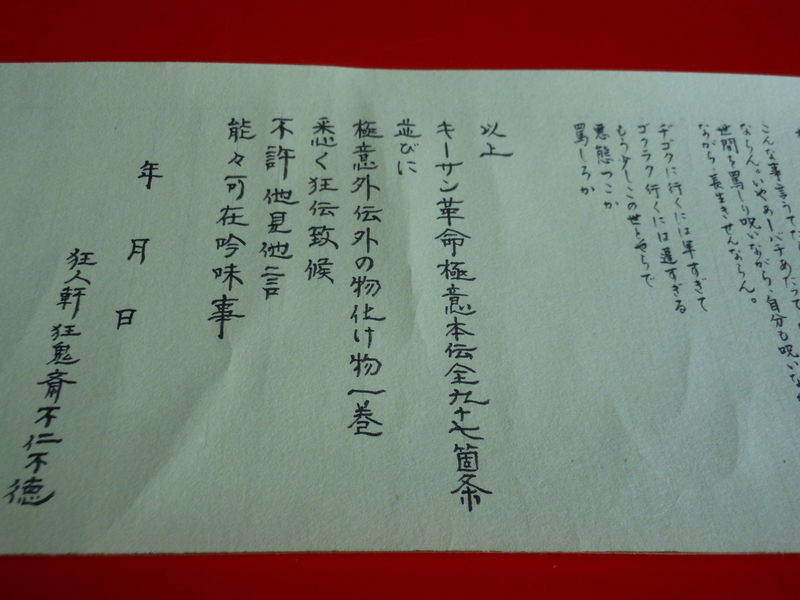 こんな事言うてた
ならん。いやぁーバチあたって
世間を罵しり呪いながら、自分も呪いなが
ながら、長生きせんならん。
ヂゴクに行くには早すぎて
ゴクラク行くには遅すぎる
もう少しこの世とやらで
悪態つこか
罵しろか
以上
キーサン革命極意本伝全九十七箇条
並びに
極意外伝外の物化け物一巻
悉く狂伝致候
不許他見他言
能々可在吟味事
年 月 日
狂人軒狂鬼斎不仁不徳